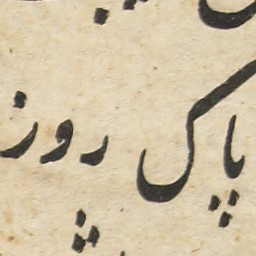 پاک روز